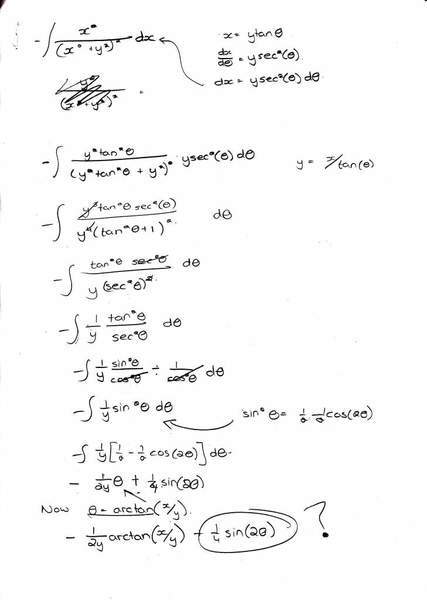 -∫ x²/(x² + y²)² dx
x = ytanθ
dx/dθ = ysec²(θ)
dx = ysec²(θ) dθ
-∫ y²tan²θ/(y²tan²θ + y²)² ysec²(θ) dθ
y = x/tan(θ)
-∫ y³tan²θ sec²(θ)/y⁴(tan²θ+1)² dθ
-∫ tan²θ sec²θ/y(sec²θ)² dθ
-∫ 1/y tan²θ/sec²θ dθ
-∫ 1/y sin²θ/cos²θ ÷ 1/cos²θ dθ
-∫ 1/y sin²θ dθ
sin²θ = 1/2 - 1/2cos(2θ)
-∫ 1/y[1/2 - 1/2cos(2θ)] dθ
- 1/2y θ + 1/4 sin(2θ)
Now θ = arctan(x/y)
- 1/2y arctan(x/y) + 1/4 sin(2θ) ?